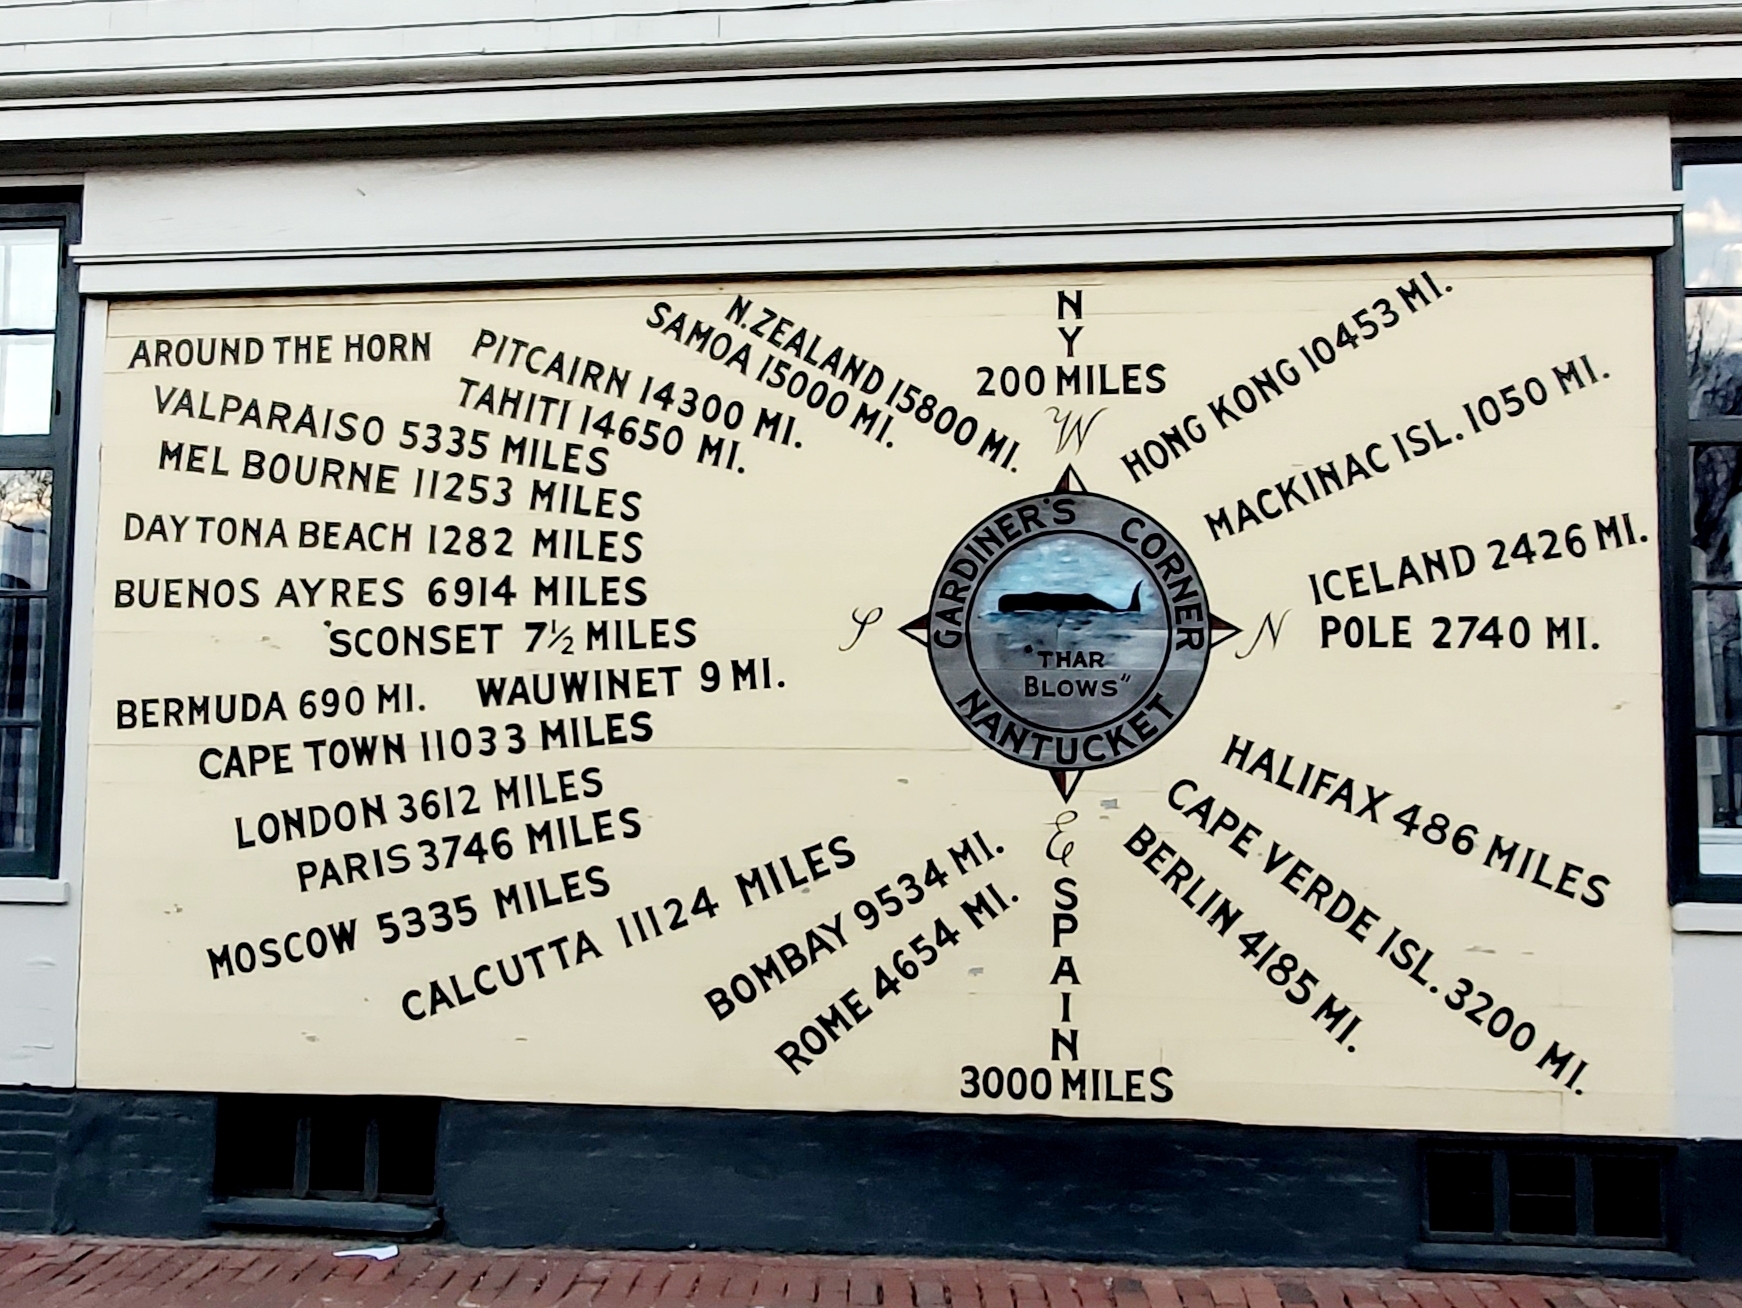 AROUND THE HORN
PITCAIRN 14300 MI.
TAHITI 14650 MI.
SAMOA 15000 MI.
N.ZEALAND 15800 MI.
VALPARAISO 5335 MILES
MEL BOURNE 11253 MILES
DAYTONA BEACH 1282 MILES
BUENOS AYRES 6914 MILES
'SCONSET 7½ MILES
BERMUDA 690 MI.
WAUWINET 9 MI.
CAPE TOWN 11033 MILES
LONDON 3612 MILES
PARIS 3746 MILES
MOSCOW 5335 MILES
CALCUTTA 11124 MILES
BOMBAY 9534 MI.
ROME 4654 MI.
NY
200 MILES
W
S
GARDINER'S CORNER
"THAR
BLOWS"
NANTUCKET
N
E
SPAIN
3000 MILES
HONG KONG 10453 MI.
MACKINAC ISL. 1050 MI.
ICELAND 2426 MI.
POLE 2740 MI.
HALIFAX 486 MILES
CAPE VERDE ISL. 3200 MI.
BERLIN 4185 MI.